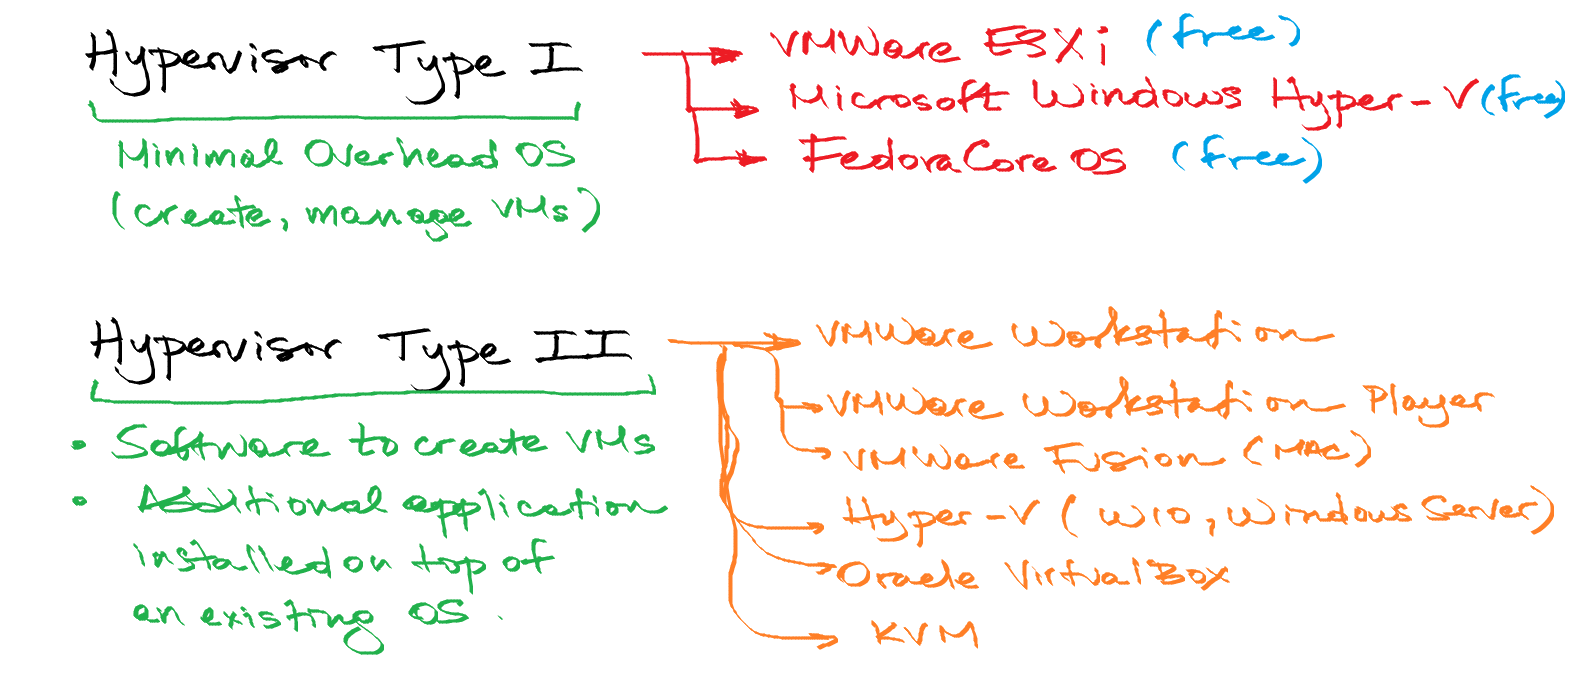 Hypervisor Type I
Minimal Overhead OS
(create, manage VMs)
VMWare ESXi (free)
Microsoft Windows Hyper-V (free)
FedoraCoreOS (free)
Hypervisor Type II
• Software to create VMs
• Additional application
installed on top of
an existing OS.
VMWare Workstation
VMWare Workstation Player
VMWare Fusion (MAC)
Hyper-V (W10, Windows Server)
Oracle VirtualBox
KVM